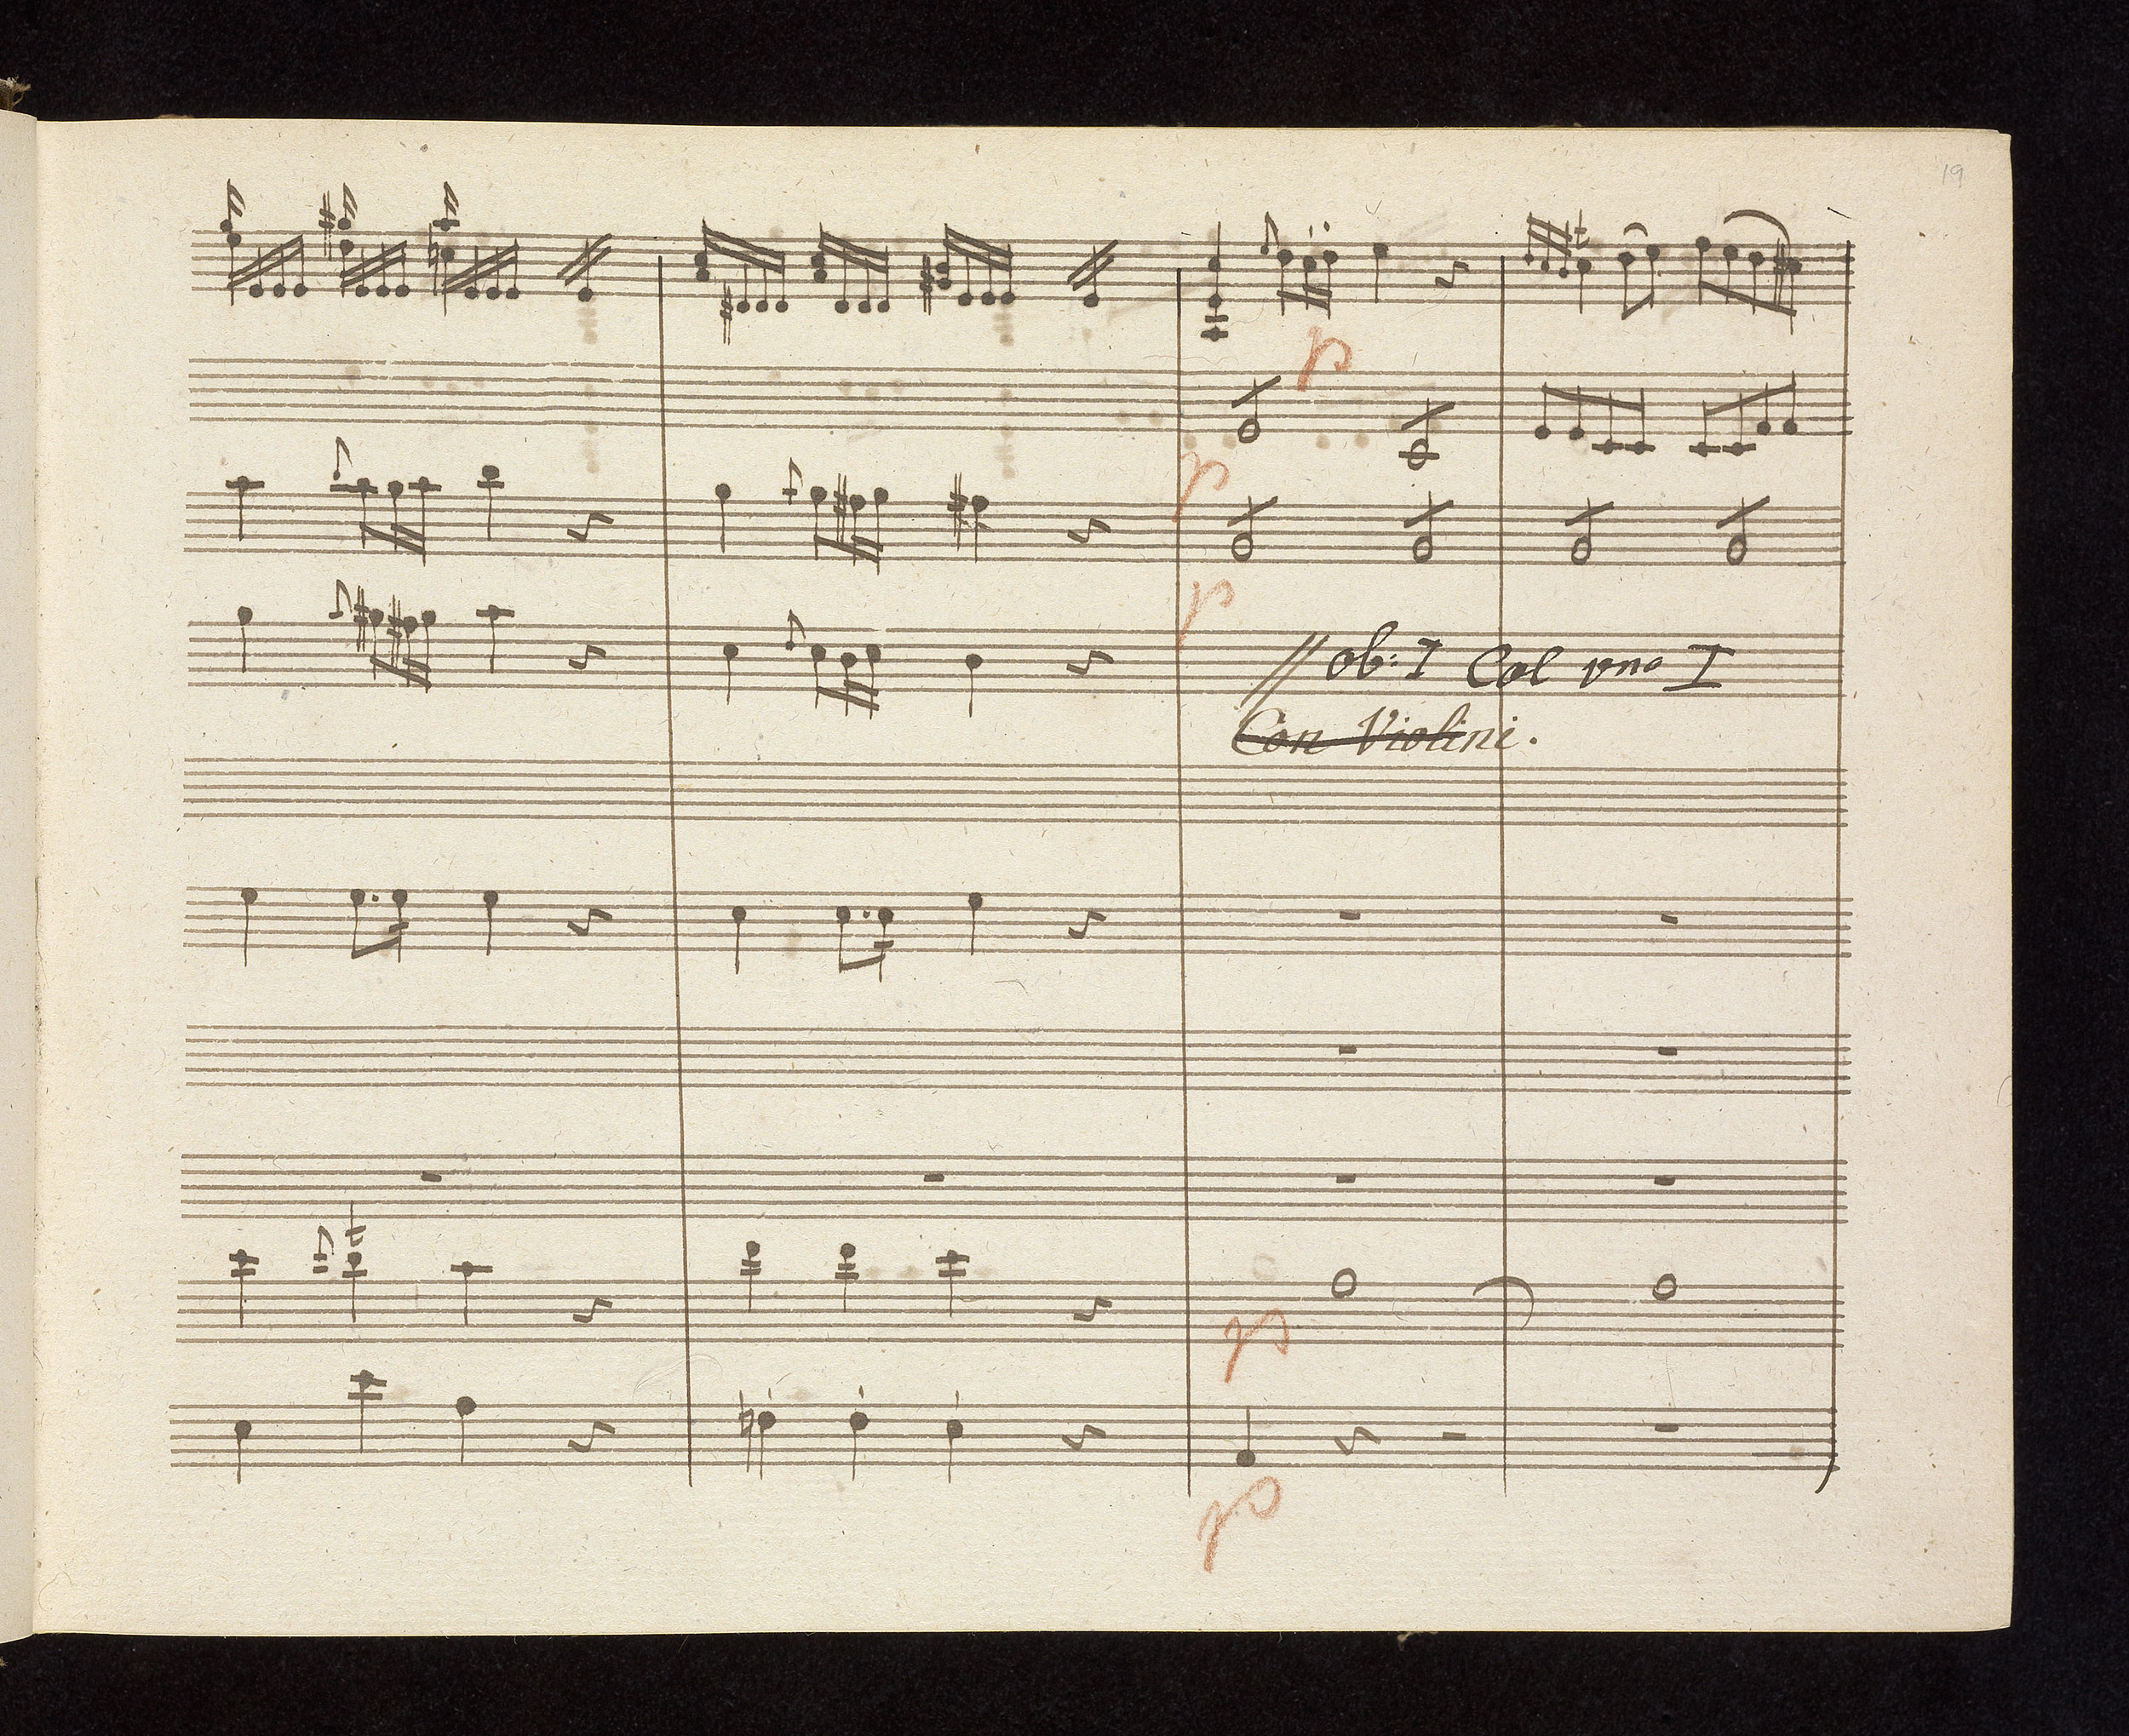 19
p
p
p
// ob: I Col vno I
Con Violini.
p
p